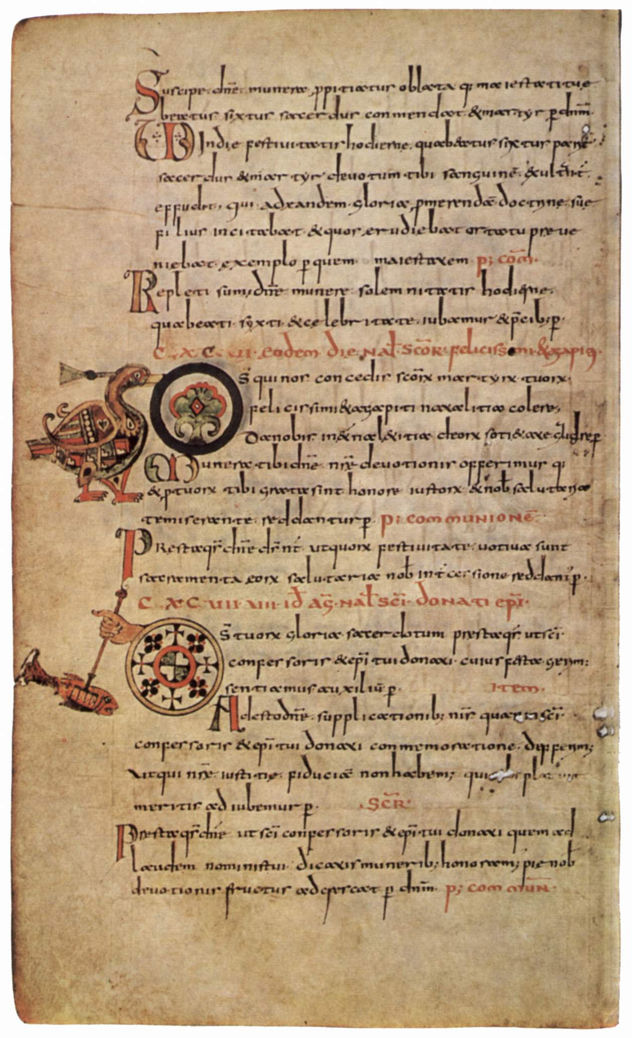 Suscipe dñe munera ppitiatus oblata q maiestati tue
beatus syxtus sacerdus commendat & martyr p dnm.
In die festivitatis hodierne, qua beatus syxtus
sacerdus & martyr devotum tibi sanguine
effudit, qui ad eandem gloriã pmerendã doctrine sue
filius incitabat & quos erudiebat ortatu preve
niebat exemplo p quem maiestatem p; com̃.
Repleti sum; dñe munere solemnitatis hodierne,
qua beati syxti & celebritate iubamur & p.
C X C VII. eodem die nat̃ Scõr felicissimi & agapiti
D̃s qui nos concedis scõrx martyrx tuorx
felicissimi & agapiti natalitia colere,
Da nobis &
Munera tibi dñe nrẽ devotionis offerimus q
& p tuorx tibi grata sint honore iustorx & nob̃ salutaria
te miserante reddantur p. p; communionẽ
Presta q̃s dñe ds̃ nr̃ ut quorx festivitate votiva sunt
sacramenta eorx salutaria nob̃ intercessione reddant̃ p.
C X C VIII VIII id̃ ag̃ nat̃ sc̃i donati ep̃i.
D̃s tuorx gloria sacerdotum presta q̃s ut sc̃i
confessoris & ep̃i tui donati cuius festa gerim;
sentiamus auxiliũ p. Item.
Adesto dñe supplicationib; nr̃is quas sc̃i
confessoris & ep̃i tui donati commemoratione deferim;
ut qui nrẽ iustitiẽ fiduciã non habem;
meritis adiubemur p. SCR̃
Presta q̃s dñe ut sc̃i confessoris & ep̃i tui donati quem ad
laudem nominis tui dicatis munerib; honoram; pie nob̃
devotionis fructus adcrescat p dnm̃. p; commun